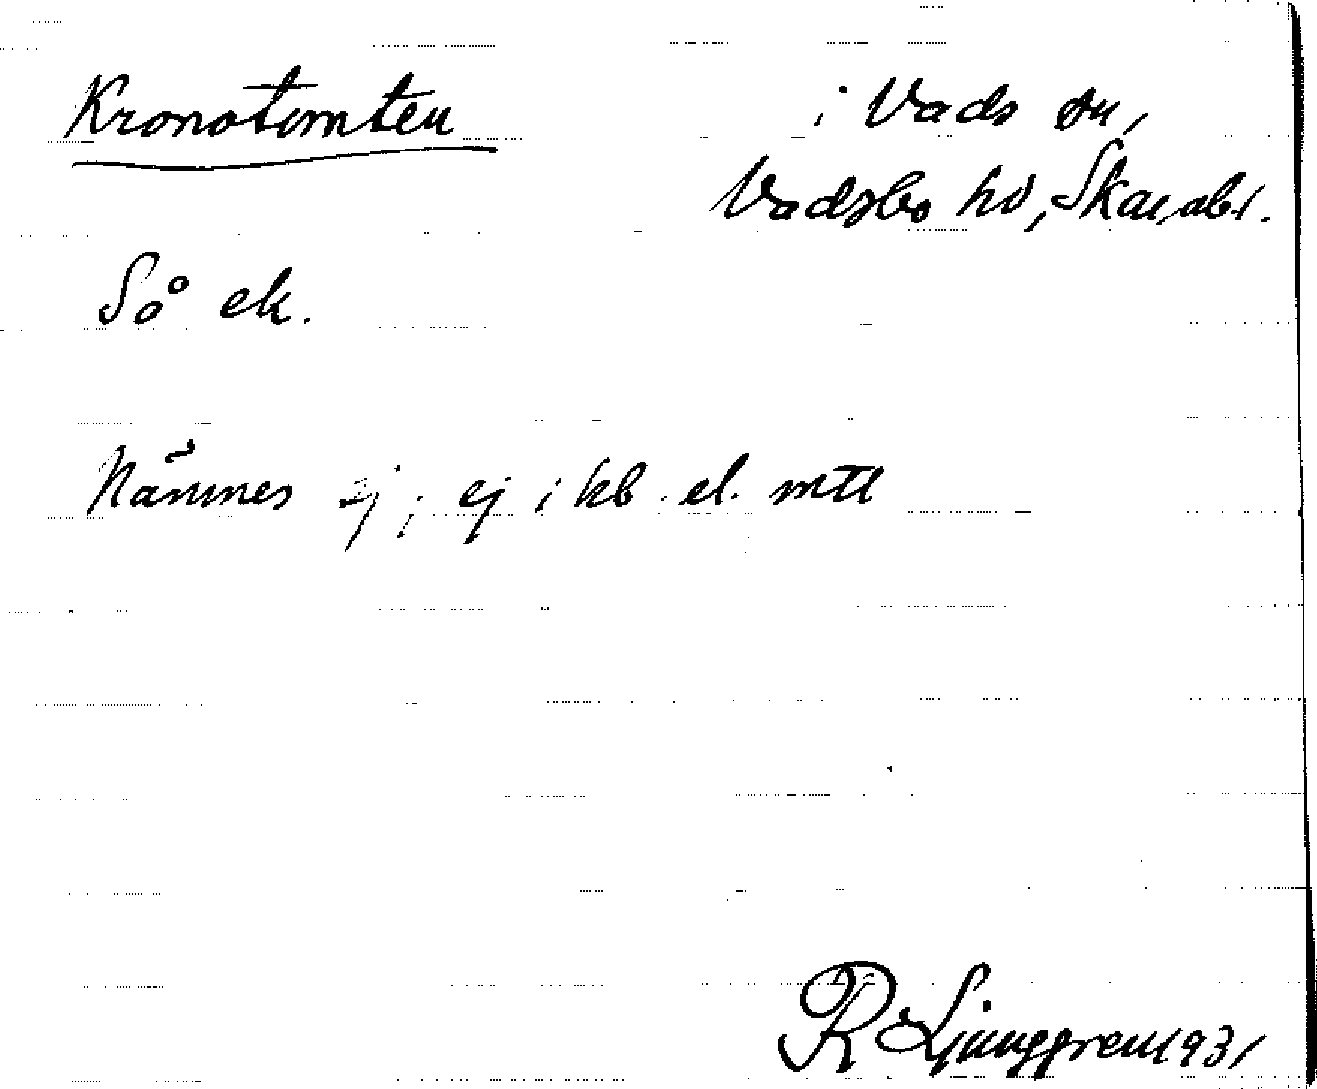 Kronotomten
i Vads sn,
Vadsbo hd, Skarabl.
Så ek.
Nämnes ej, ej i kb. el. mtl
R Ljunggren 1931